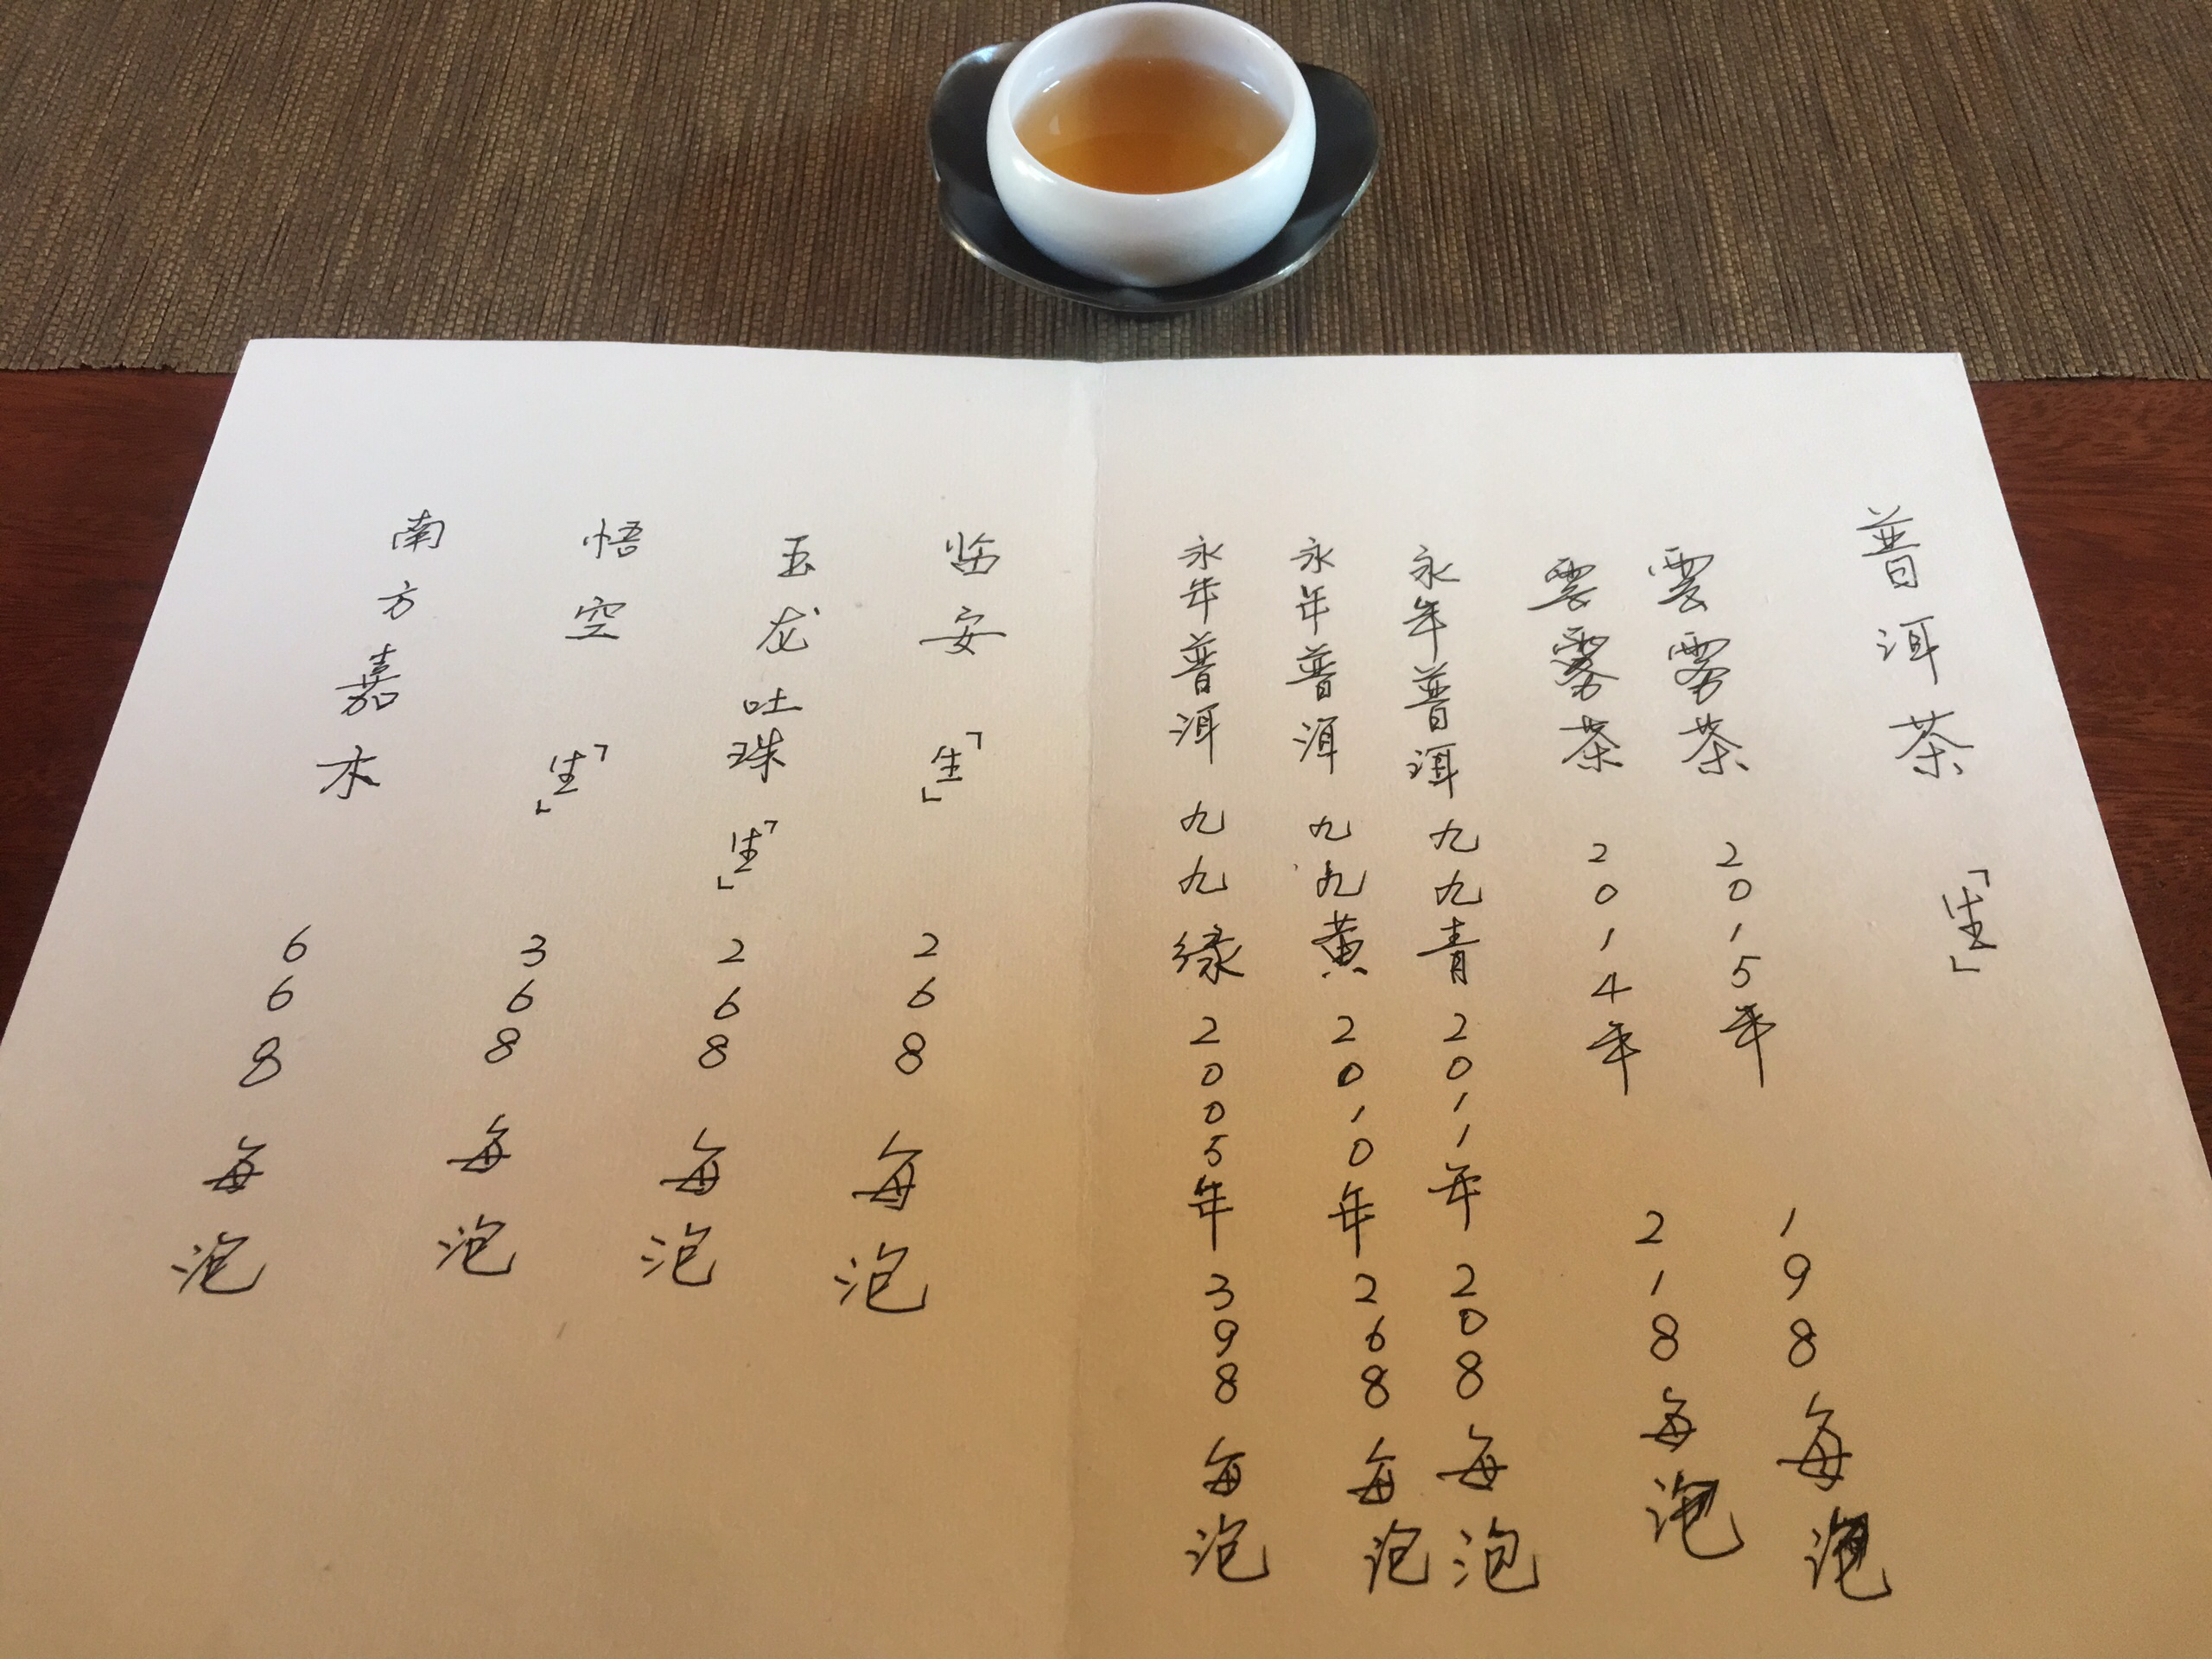 普洱茶「生」
雲霧茶 2015年 198 每泡
雲霧茶 2014年 218 每泡
永年普洱九九青 2011年 208 每泡
永年普洱九九黄 2010年 268 每泡
永年普洱九九绿 2005年 398 每泡
临安「生」 268 每泡
玉龙吐珠「生」 268 每泡
悟空「生」 368 每泡
南方嘉木 668 每泡